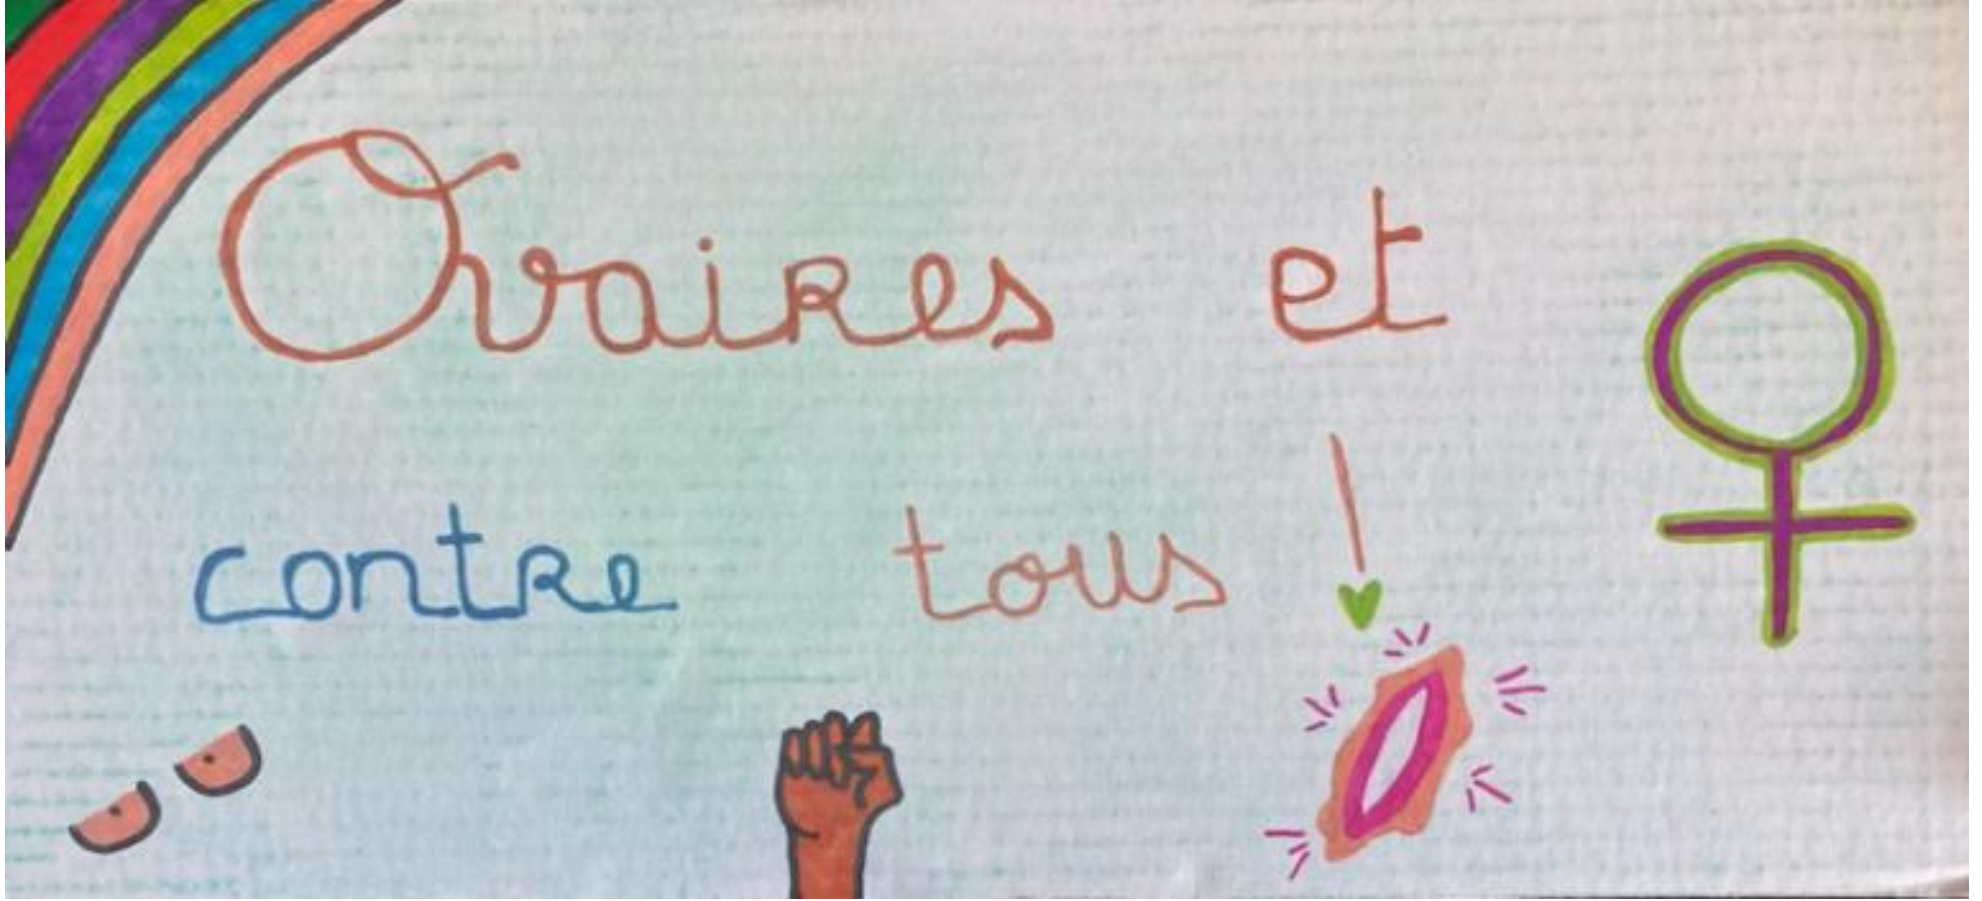 Ovaires et
contre tous !